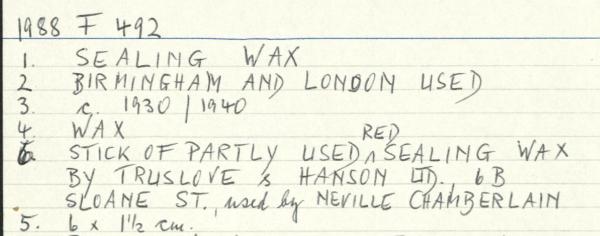 1988 F 492
1. SEALING WAX
2 BIRMINGHAM AND LONDON USED
3. c. 1930 / 1940
4. WAX
6. STICK OF PARTLY USED ^RED SEALING WAX
BY TRUSLOVE & HANSON LTD., 6B
SLOANE ST., used by NEVILLE CHAMBERLAIN
5. 6 x 1½ cm.